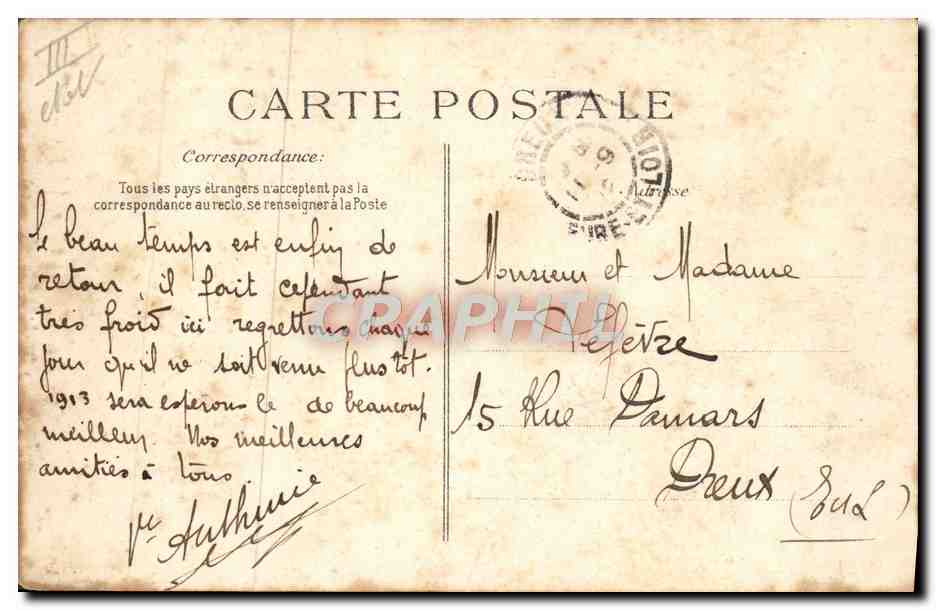 III
CARTE POSTALE
Correspondance:
Tous les pays étrangers n'acceptent pas la
correspondance au recto, se renseigner à la Poste
Le beau temps est enfin de
retour, il fait cependant
très froid ici regrettons chaque
jour qu'il ne soit venu plus tôt.
1913 sera espérons le de beaucoup
meilleur. Nos meilleures
amitiés à tous
Adresse
Monsieur et Madame
Lefèvre
15 Rue Damars
Dreux (E et L)
CRAPHIL
EURE-ET-LOIR